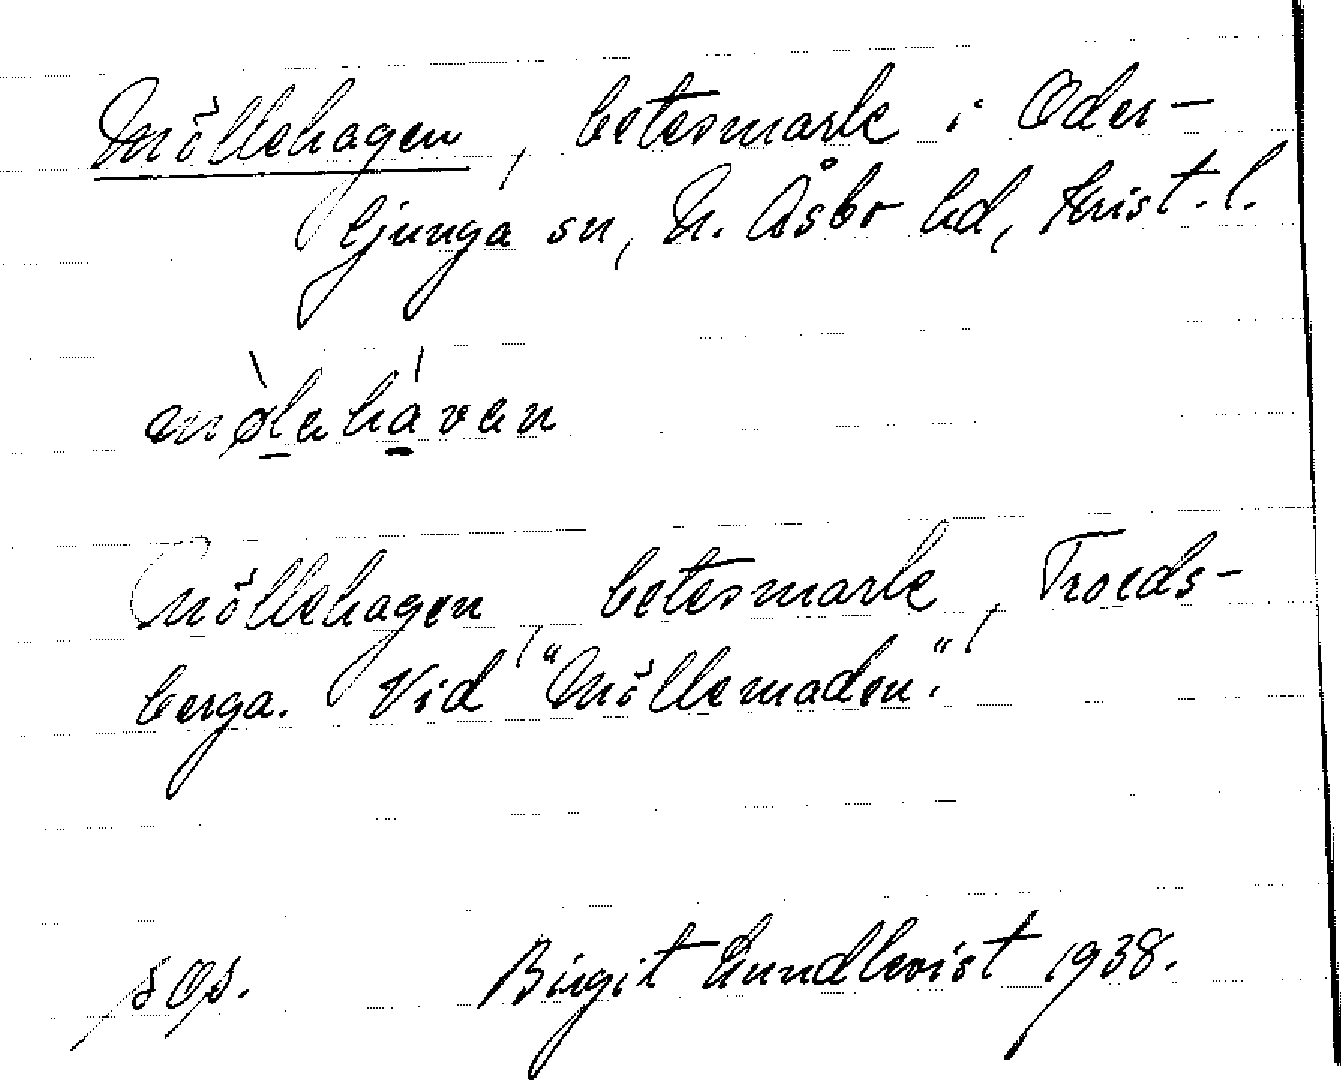 Möllehagen, betesmark i Oder-
ljunga sn, N. Åsbo hd, Krist. l.
mø̀lahávan
Möllehagen, betesmark, Troeds-
berga. Vid "Möllemaden."
Birgit Lundkvist 1938.